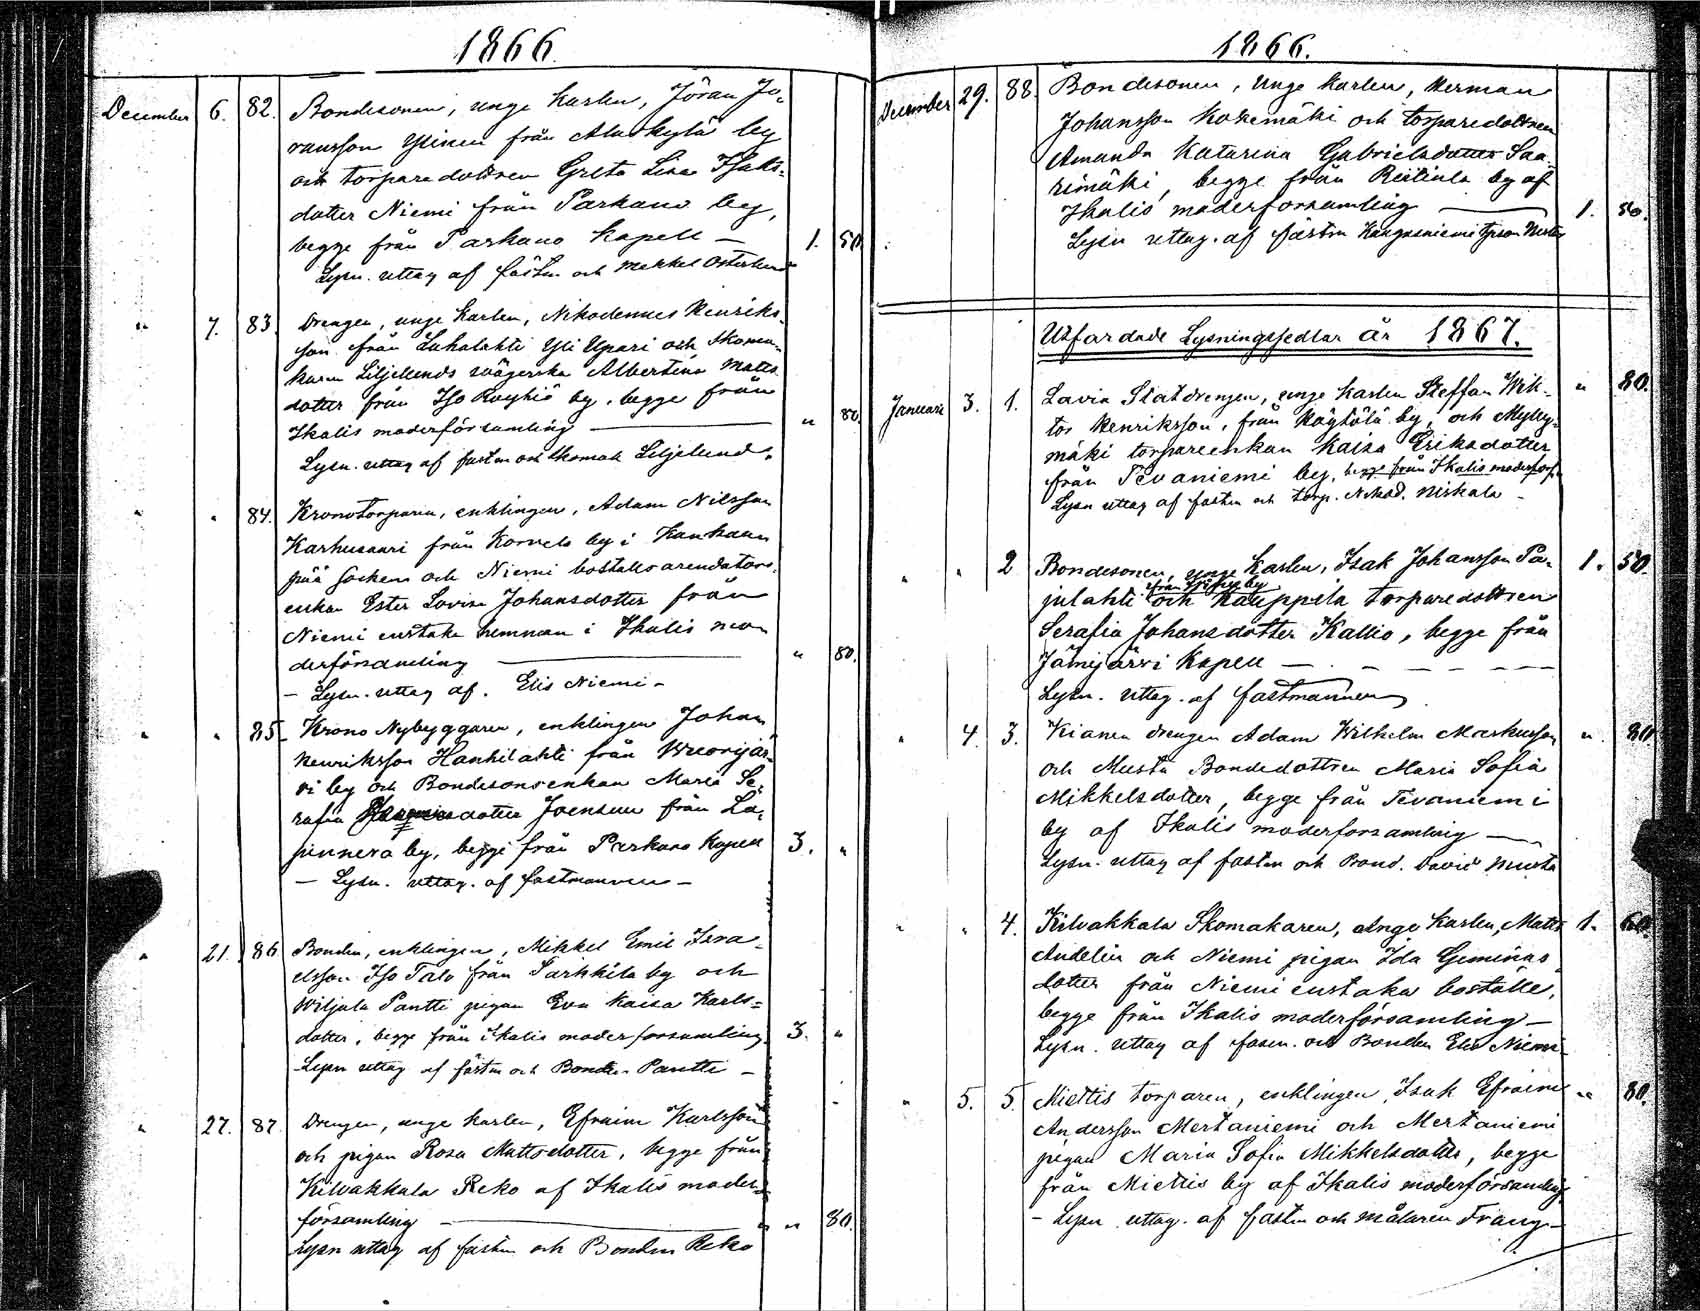 1866.
December 6. 82. Bondesonen, unge karlen, Jöran Jö-
ransson Ylinen från Alaskylä by
och torparedottren Greta Lisa Isaks-
dotter Niemi från Parkano by,
begge från Parkano kapell — 1. 50.
Lysn. uttag af fästm och Mikkel Österlund
" 7. 83. Drengen, unge karlen, Nikodemus Henriks-
son från Luhalahti Yli Upari och Skoma-
karen Liljelunds svägerska Albertina Matts-
dotter från Iso Röyhiö by, begge från
Ikalis moderförsamling — " 80.
Lysn. uttag af fästm och Skomak Liljelund.
" " 84. Kronotorparen, enklingen, Adam Nilsson
Karhusaari från Korvela by i Kankaan
pää socken och Niemi boställs arendators
enkan Ester Lovisa Johansdotter från
Niemi enstaka hemman i Ikalis mo-
derförsamling — " 80.
— Lysn. uttag af. Elis Niemi —
" " 85. Krono Nybyggaren, enklingen Johan
Henriksson Hanhilahti från Wuorijär-
vi by och Bondesonsenkan Maria Se-
rafia dotter Joensuu från La-
pinneva by, begge från Parkano Kapell 3. "
— Lysn. uttag. af fästmannen —
" 21. 86. Bonden, enklingen, Mikkel Emil Isra-
elsson Iso Talo från Sarkkila by och
Wiljala Pantti pigan Eva Kaisa Karls-
dotter, begge från Ikalis moderförsamling 3. "
Lysn uttag af fästm och Bonden Pantti —
" 27. 87. Drengen, unge karlen, Efraim Karlsson
och pigan Rosa Mattsdotter, begge från
Kilvakkala Reko af Ikalis moder-
församling — " 80.
Lysn uttag af fästm och Bonden Reko
1866.
December 29. 88. Bondesonen, Unge karlen, Herman
Johansson Koskemäki och torparedottren
Amanda Katarina Gabrielsdotter Saa-
rimäki, begge från Riitiala by af
Ikalis moderförsamling — 1. 50.
Lysn uttag. af fästm Kangasniemi
Utfärdade Lysningssedlar år 1867.
Januari 3. 1. Lavia Statdrengen, unge karlen Steffan Wik- " 80.
tor Henriksson, från Röytölä by, och Mylly-
mäki torpareenkan Kaisa Eriksdotter
från Tevaniemi by, begge från Ikalis moderförs.
Lysn uttag af fästm och torp. Nikod. Niskala —
" " 2 Bondesonen, unge karlen, Isak Johansson Pa- 1. 50.
från by
julahti och Kauppila torparedottren
Serafia Johansdotter Kallio, begge från
Jämijärvi Kapell —
Lysn. uttag. af fästmannen
" 4. 3. Kianen drengen Adam Wilhelm Markusson " 80
och Musta Bondedottren Maria Sofia
Mikkelsdotter, begge från Tevaniemi
by af Ikalis moderförsamling —
Lysn. uttag af fästm och Bond. David Musta
" " 4. Kilvakkala Skomakaren, Unge karlen, Matts 1. 60.
Andelin och Niemi pigan Ida Geminas
dotter från Niemi enstaka boställe,
begge från Ikalis moderförsamling —
Lysn. uttag af fäsm. och Bonden Elis Niemi
" 5. 5. Miettis torparen, enklingen Isak Efraim " 80.
Andersson Mertaniemi och Mertaniemi
pigan Maria Sofia Mikkelsdotter, begge
från Miettis by af Ikalis moderförsamling
— Lysn uttag. af fästm och målaren Frang —